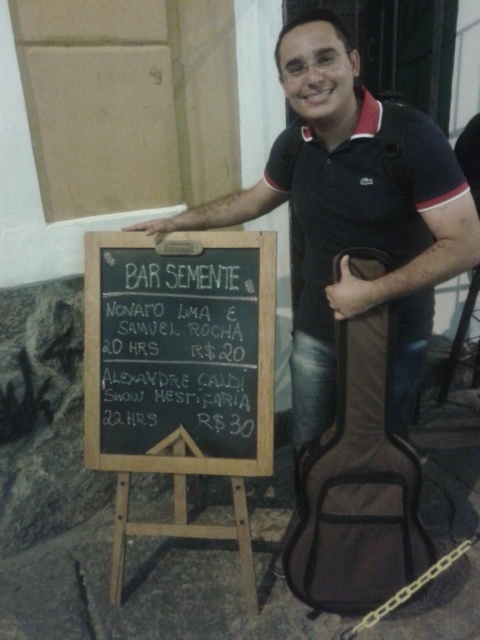 BAR SEMENTE
NONATO LIMA E
SAMUEL ROCHA
20 HRS R$20
ALEXANDRE CALDI
SHOW MESTIÇARIA
22 HRS R$30